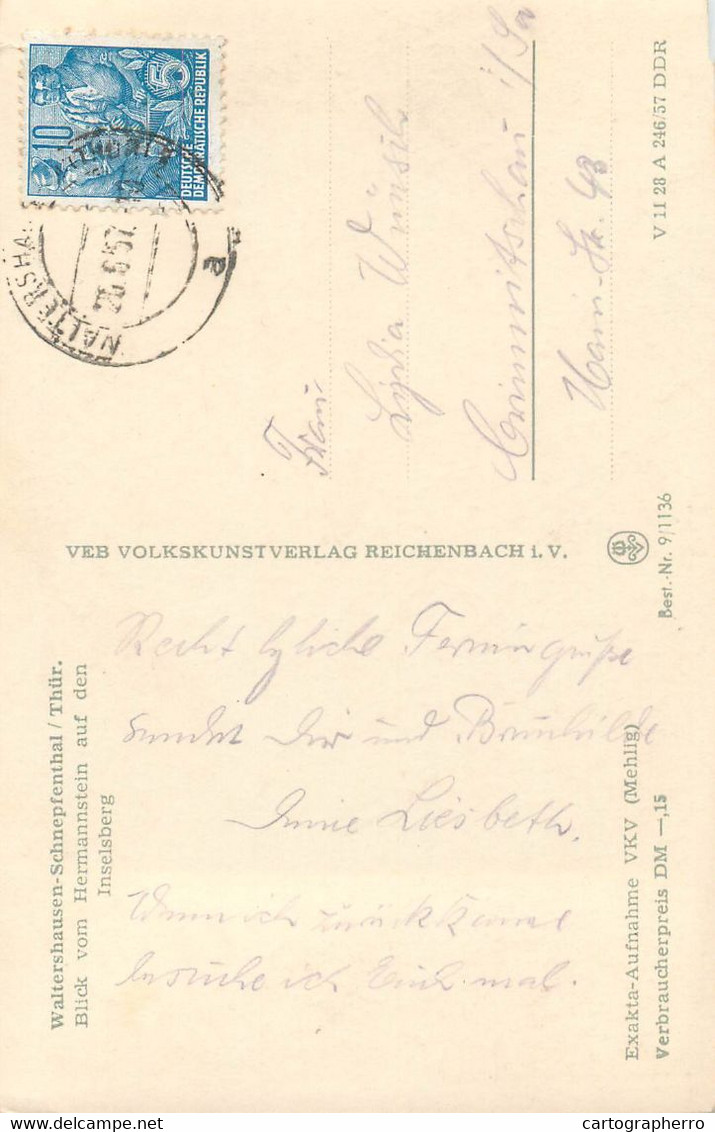 Waltershausen-Schnepfenthal / Thür.
Blick vom Hermannstein auf den
Inselsberg
Recht hzliche Feriengrüße
sendet Dir und Brunhilde
Liesbeth.
Wenn ich zurück komme
besuche ich Euch mal.
Exakta-Aufnahme VKV (Mehlig)
Verbraucherpreis DM —,15
VEB VOLKSKUNSTVERLAG REICHENBACH i. V.
Best.-Nr. 9/1136
10
5
DEUTSCHE
DEMOKRATISCHE REPUBLIK
WALTERSHA
6.57
a
Frau
Lydia Wünsch
Crimmitschau i/Sa
Hain-Str. 48
V 11 28 A 246/57 DDR
Website:Delcampe.net
cartographerro